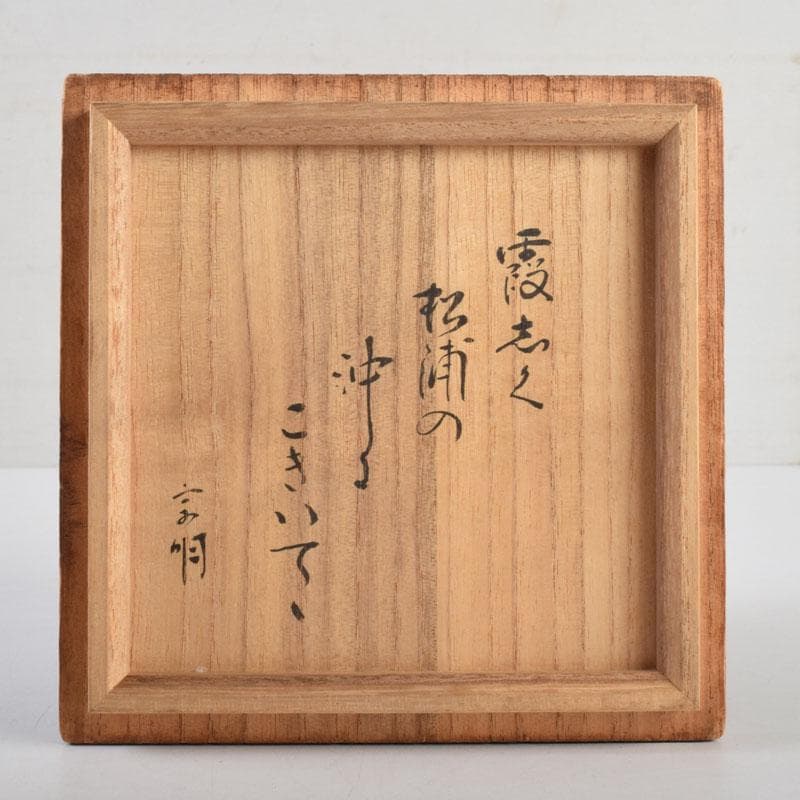 霞志く
松浦の
沖に
こきいてゝ
宗明